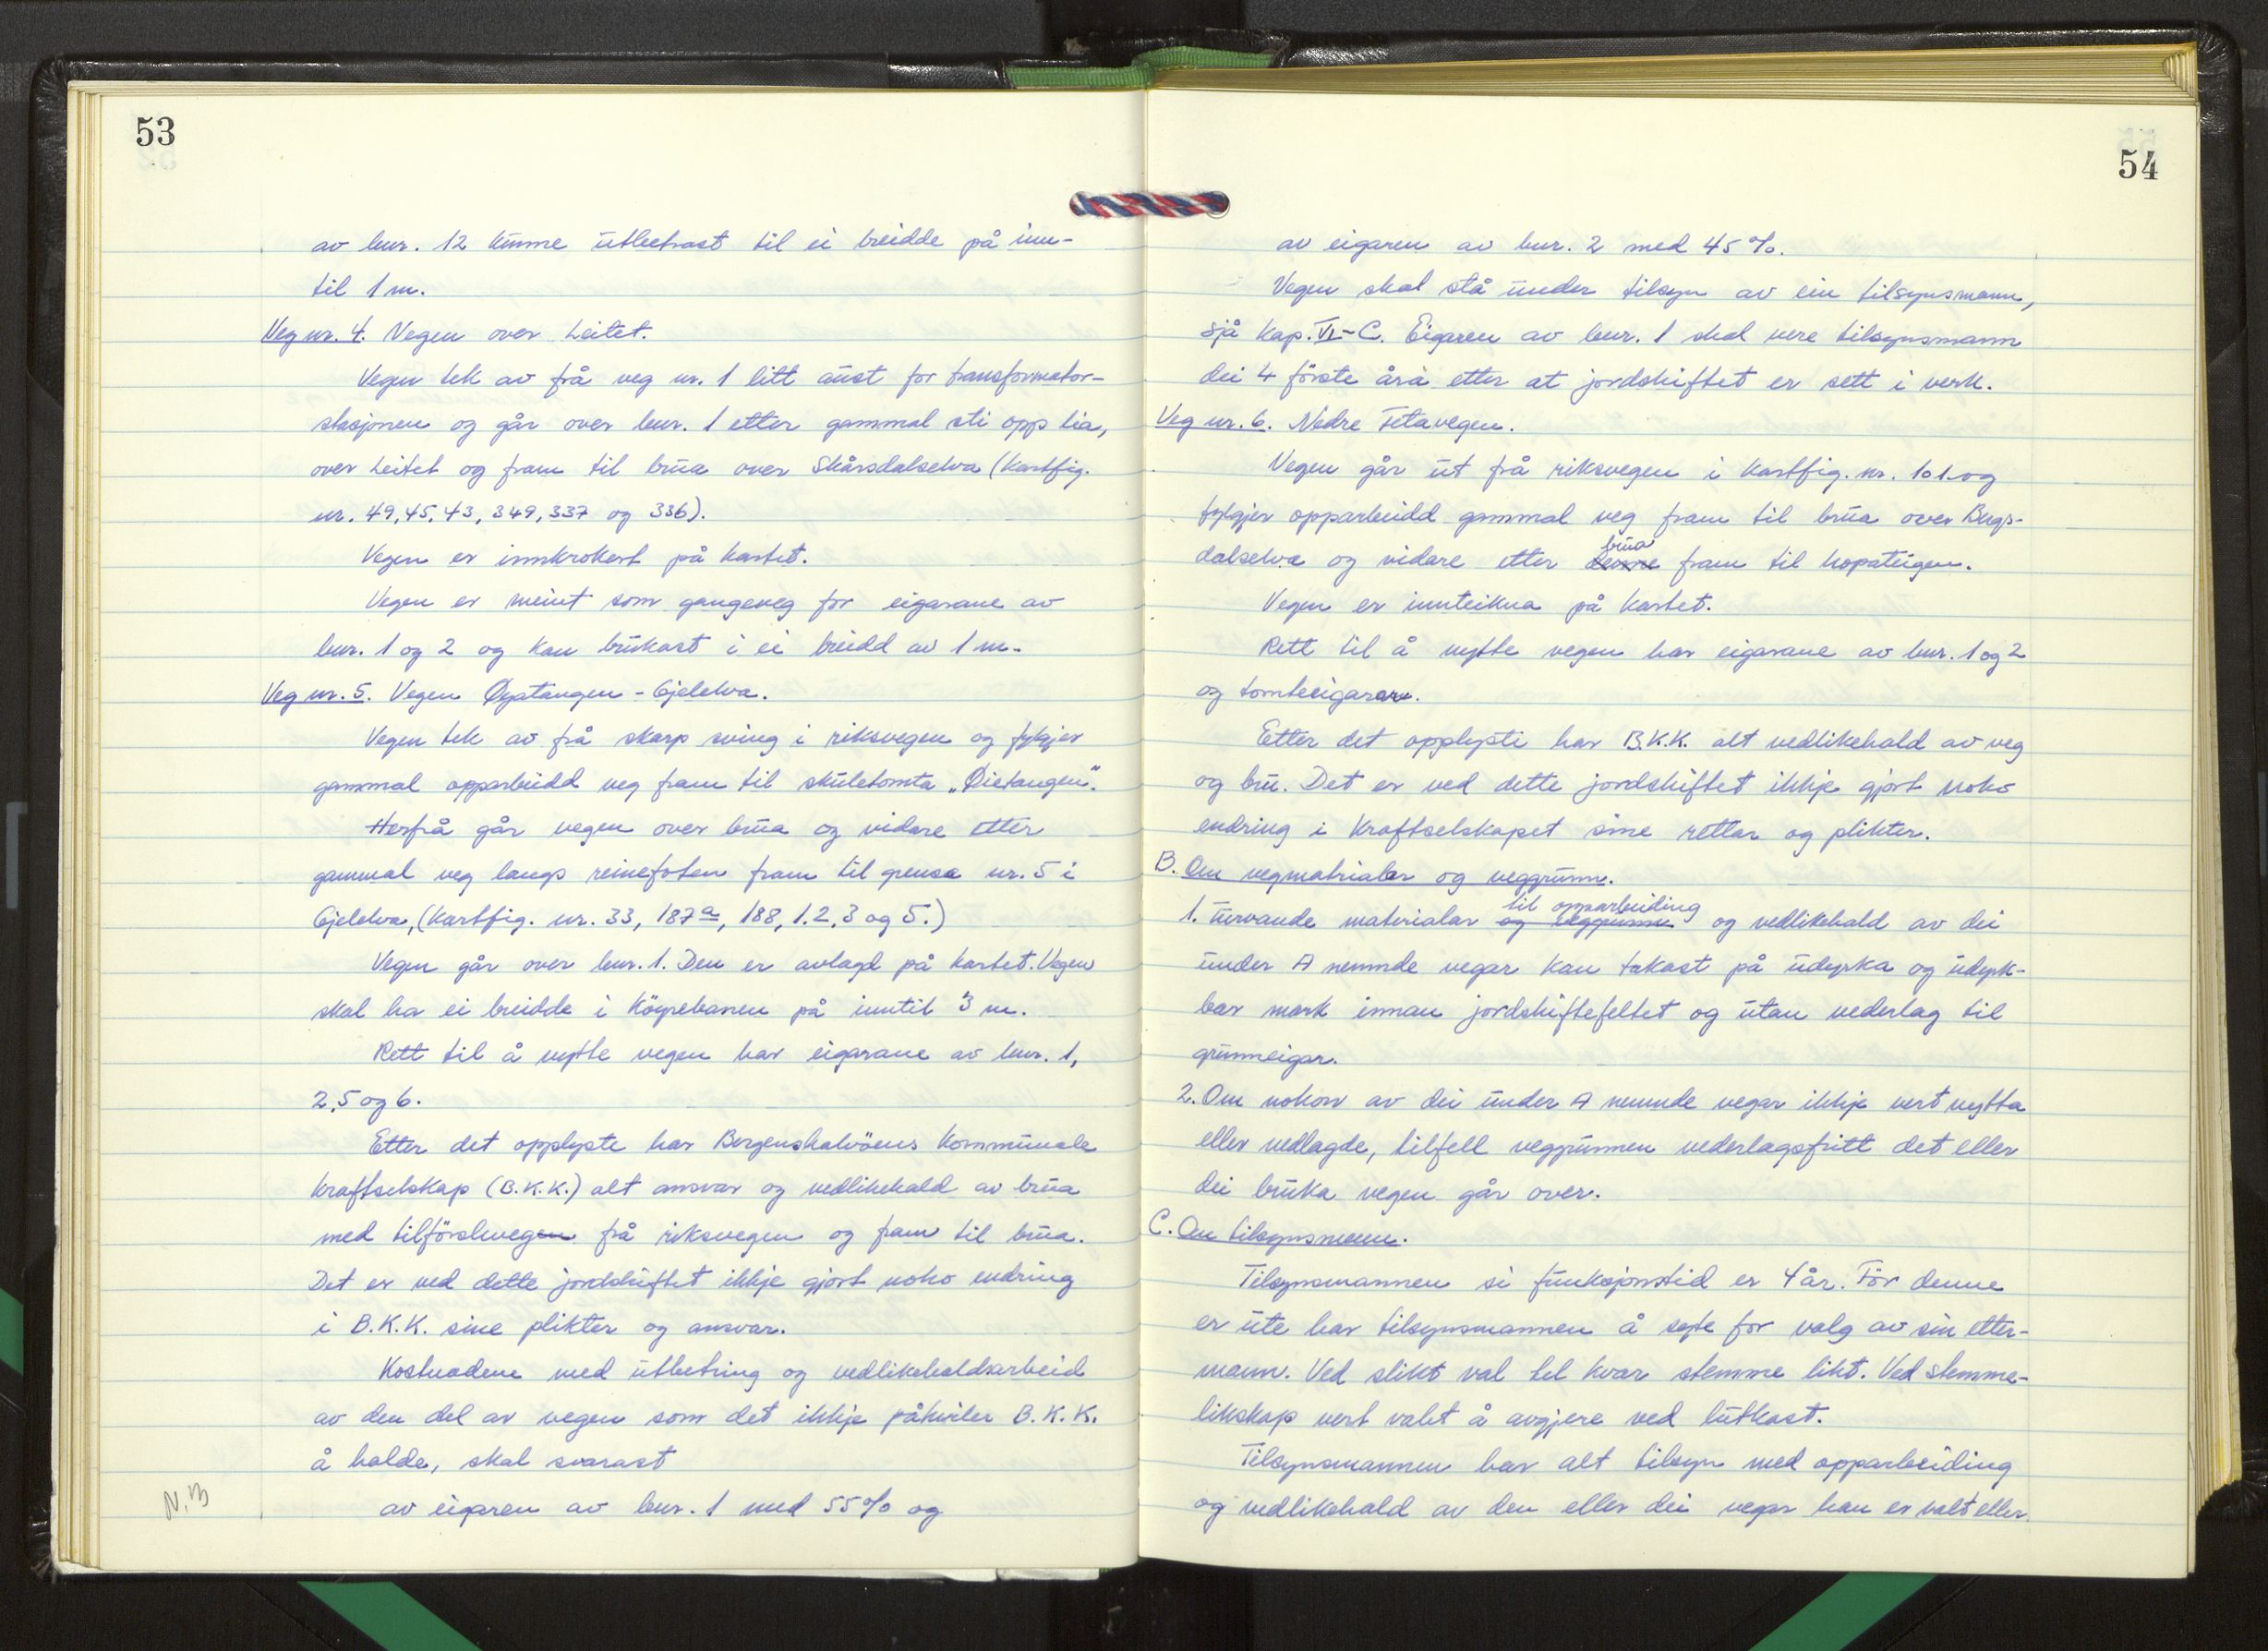 53
av bnr. 12 kunne utbetrast til ei breidde på inn-
til 1 m.
Veg nr. 4. Vegen over Leitet.
Vegen tek av frå veg nr. 1 litt aust for transformator-
stasjonen og går over bnr. 1 etter gammal sti opp Lia,
over Leitet og fram til brua over Skårsdalselva (Kartfig.
nr. 49, 45, 43, 349, 337 og 336).
Vegen er innkrokert på kartet.
Vegen er meint som gangeveg for eigarane av
bnr. 1 og 2 og kan brukast i ei breidd av 1 m.
Veg nr. 5. Vegen Øyatangen - Gjelelva.
Vegen tek av frå skarp sving i riksvegen og fylgjer
gammal opparbeidd veg fram til skuletomta „Øietangen".
Herfrå går vegen over brua og vidare etter
gammal veg langs reinefoten fram til grensa nr. 5 i
Gjelelva, (Kartfig. nr. 33, 187a, 188, 1, 2, 3 og 5.)
Vegen går over bnr. 1. Den er avlagd på kartet. Vegen
skal ha ei breidde i köyrebanen på inntil 3 m.
Rett til å nytte vegen har eigarane av bnr. 1,
2, 5 og 6.
Etter det opplyste har Bergenshalvöens Kommunale
Kraftselskap (B.K.K.) alt ansvar og vedlikehald av brua
med tilförslevegen frå riksvegen og fram til brua.
Det er ved dette jordskiftet ikkje gjort noko endring
i B.K.K. sine plikter og ansvar.
Kostnadene med utbetring og vedlikehaldsarbeid
av den del av vegen som det ikkje påkviler B.K.K.
å halde, skal svarast
av eigaren av bnr. 1 med 55% og
N.B
54
av eigaren av bnr. 2 med 45%.
Vegen skal stå under tilsyn av ein tilsynsmann,
sjå kap. VI-C. Eigaren av bnr. 1 skal vere tilsynsmann
dei 4 förste åra etter at jordskiftet er sett i verk.
Veg nr. 6. Nedre Fetavegen.
Vegen går ut frå riksvegen i Kartfig. nr. 101 og
fylgjer opparbeidd gammal veg fram til brua over Bergs-
brua
dalselva og vidare etter denne fram til Hopateigen.
Vegen er innteikna på kartet.
Rett til å nytte vegen har eigarane av bnr. 1 og 2
og tomteeigarar.
Etter det opplysti har B.K.K. alt vedlikehald av veg
og bru. Det er ved dette jordskiftet ikkje gjort noko
endring i Kraftselskapet sine rettar og plikter.
B. Om vegmatrialer og veggrunn.
til opparbeiding
1. Turvande materialar og veggrunn og vedlikehald av dei
under A nemnde vegar kan takast på udyrka og udyrk-
bar mark innan jordskiftefeltet og utan vederlag til
grunneigar.
2. Om nokon av dei under A nemnde vegar ikkje vert nytta
eller nedlagde, tilfell veggrunnen vederlagsfritt det eller
dei bruka vegen går over.
C. Om tilsynsmenn.
Tilsynsmannen si funksjonstid er 4 år. För denne
er ute har tilsynsmannen å syte for valg av sin etter-
mann. Ved slikt val tel kvar stemme likt. Ved stemme-
likskap vert valet å avgjere ved lutkast.
Tilsynsmannen har alt tilsyn med opparbeiding
og vedlikehald av den eller dei vegar han er valt eller